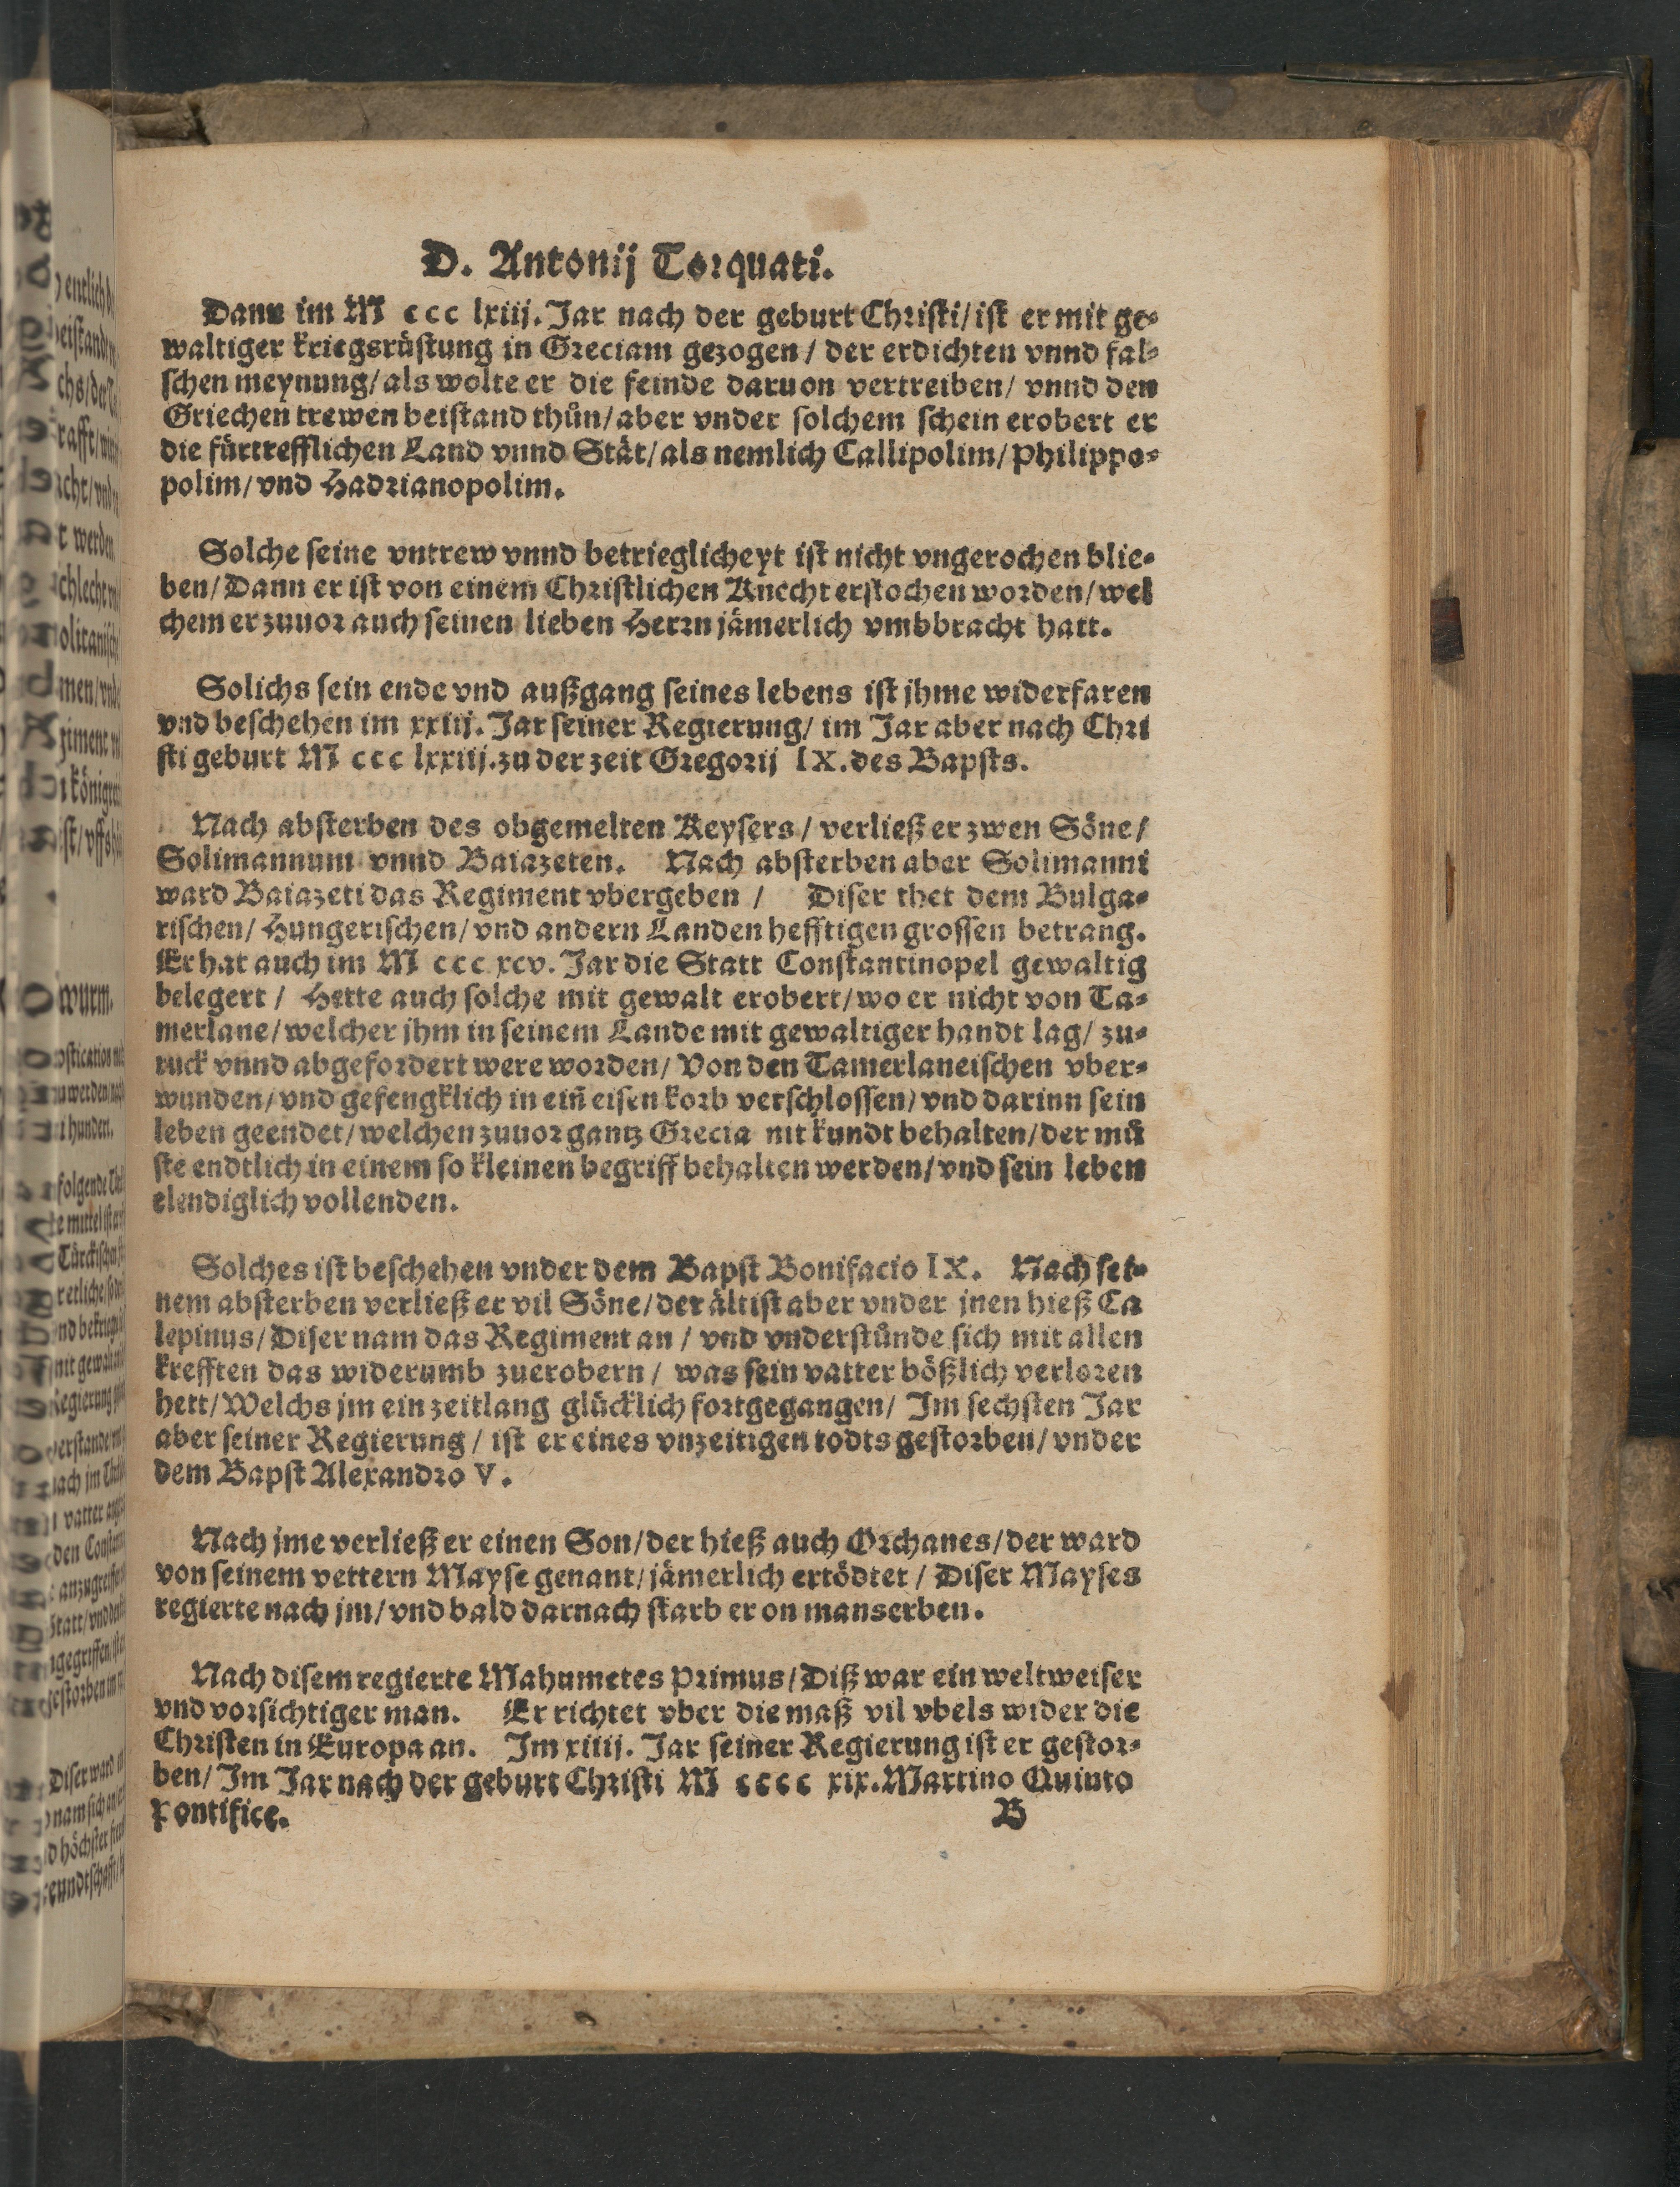 D. Antonij Torquati.
Dann im M ccc lxiij. Jar nach der geburt Christi/ist er mit ge⸗
waltiger kriegsrüstung in Greciam gezogen / der erdichten vnnd fal⸗
schen meynung/als wolte er die feinde daruon vertreiben/ vnnd den
Griechen trewen beistand thůn/aber vnder solchem schein erobert er
die fürtrefflichen Land vnnd Stät/als nemlich Callipolim/Philippo⸗
polim/vnd Hadrianopolim.
Solche seine vntrew vnnd betrieglicheyt ist nicht vngerochen blie⸗
ben/Dann er ist von einem Christlichen Knecht erstochen worden/wel
chem er zuuor auch seinen lieben Herrn jämerlich vmbbracht hatt.
Solichs sein ende vnd außgang seines lebens ist jhme widerfaren
vnd beschehen im xxiij. Jar seiner Regierung/ im Jar aber nach Chri
sti geburt M ccc lxxiij.zu der zeit Gregorij IX.des Bapsts.
Nach absterben des obgemelten Keysers/ verließ er zwen Söne/
Solimannum vnnd Baiazeten. Nach absterben aber Solimanni
ward Baiazeti das Regiment vbergeben / Diser thet dem Bulga⸗
rischen/Hungerischen/vnd andern Landen hefftigen grossen betrang.
Er hat auch im M ccc xcv. Jar die Statt Constantinopel gewaltig
belegert / Hette auch solche mit gewalt erobert/wo er nicht von Ta⸗
merlane/welcher jhm in seinem Lande mit gewaltiger handt lag/ zu⸗
ruck vnnd abgefordert were worden/ Von den Tamerlaneischen vber⸗
wunden/vnd gefengklich in eiñ eisen korb verschlossen/vnd darinn sein
leben geendet/welchen zuuor gantz Grecia nit kundt behalten/der mů
ste endtlich in einem so kleinen begriff behalten werden/vnd sein leben
elendiglich vollenden.
Solches ist beschehen vnder dem Bapst Bonifacio IX. Nach sei⸗
nem absterben verließ er vil Söne/der ältist aber vnder jnen hieß Ca
lepinus/Diser nam das Regiment an / vnd vnderstůnde sich mit allen
krefften das widerumb zuerobern / was sein vatter bößlich verloren
hett/Welchs jm ein zeitlang glücklich fortgegangen/ Im sechsten Jar
aber seiner Regierung / ist er eines vnzeitigen todts gestorben/vnder
dem Bapst Alexandro V.
Nach jme verließ er einen Son/der hieß auch Orchanes/der ward
von seinem vettern Mayse genant/jämerlich ertödtet / Diser Mayses
regierte nach jm/vnd bald darnach starb er on manserben.
Nach disem regierte Mahumetes Primus/Diß war ein weltweiser
vnd vorsichtiger man. Er richtet vber die maß vil vbels wider die
Christen in Europa an. Im xiiij. Jar seiner Regierung ist er gestor⸗
ben/Im Jar nach der geburt Christi M cccc xix.Martino Quinto
Pontifice. B